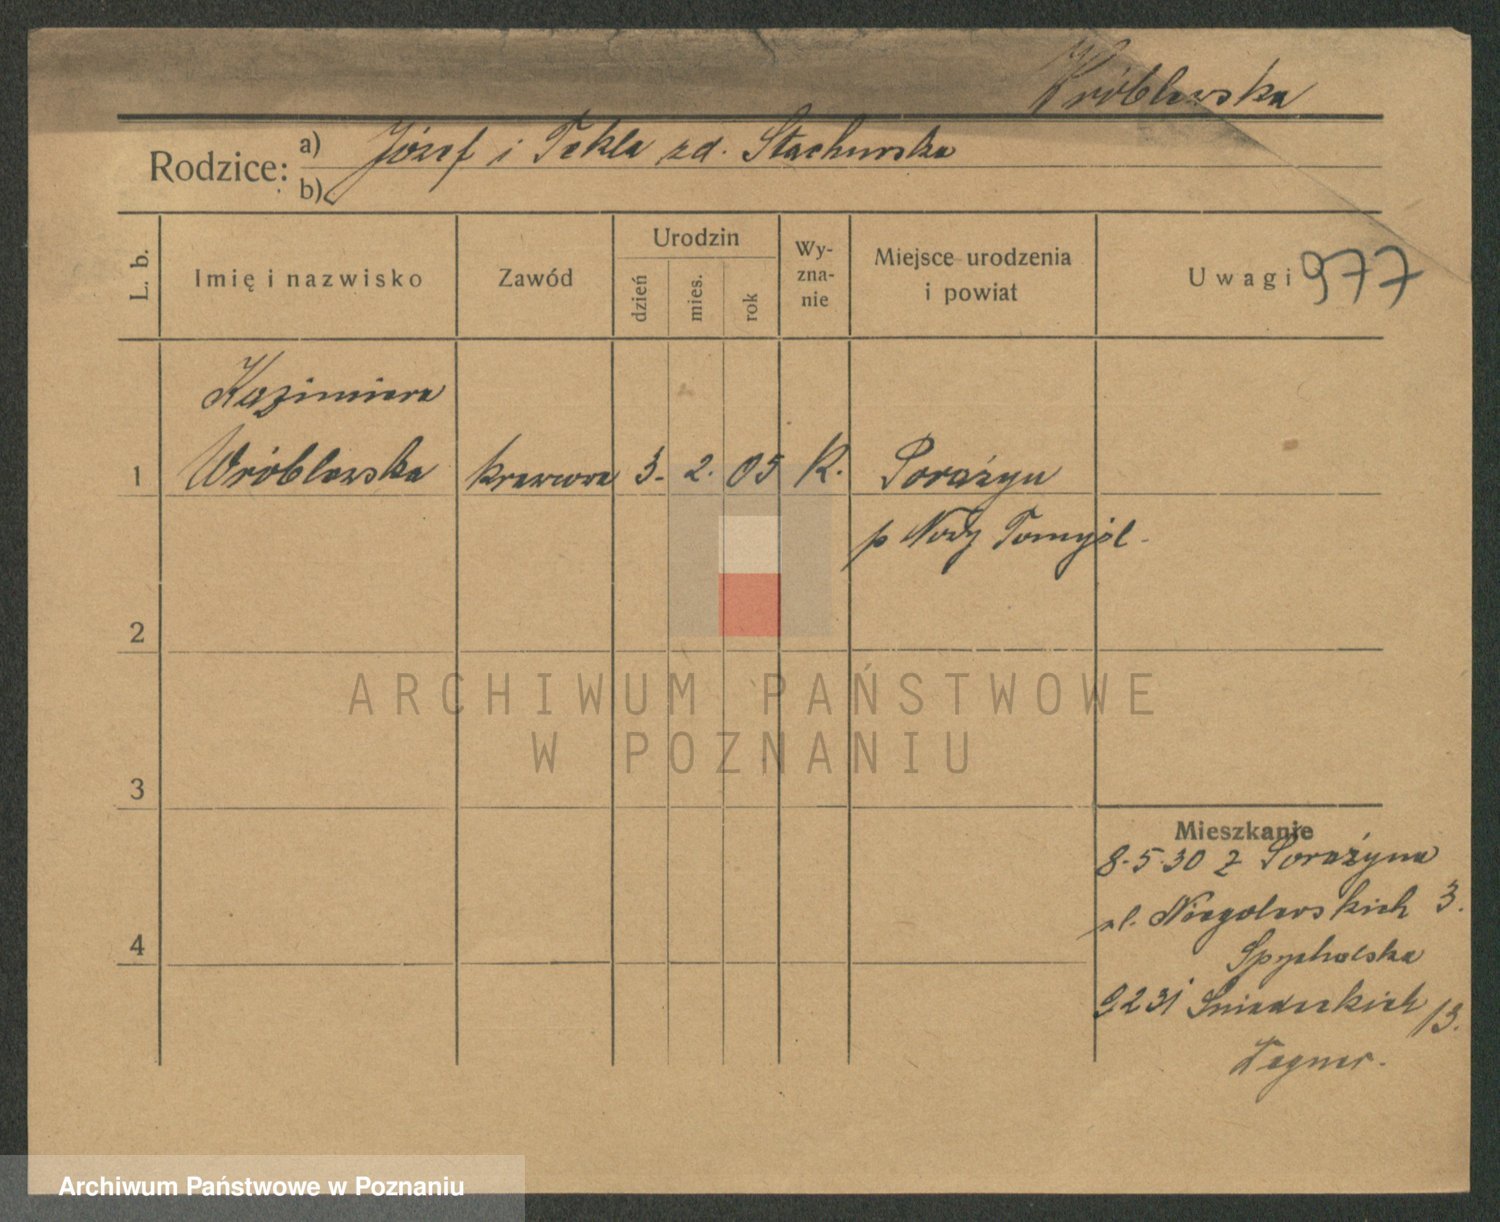 Wróblewska
Rodzice: a) Józef i Tekla zd. Stachurska
b)
L. b.
Imię i nazwisko
Zawód
Urodzin
dzień
mies.
rok
Wy-
zna-
nie
Miejsce urodzenia
i powiat
Uwagi 977
Kazimiera
1 Wróblewska krawcowa 3. 2. 05 R. Porażyn
p Nowy Tomyśl.
2
ARCHIWUM PAŃSTWOWE
W POZNANIU
3
Mieszkanie
8.5.30 z Porażyna
ul. Niegolewskich 3.
Spychalska
4
9 2 31 Śniadeckich 13.
Wegner.
Archiwum Państwowe w Poznaniu